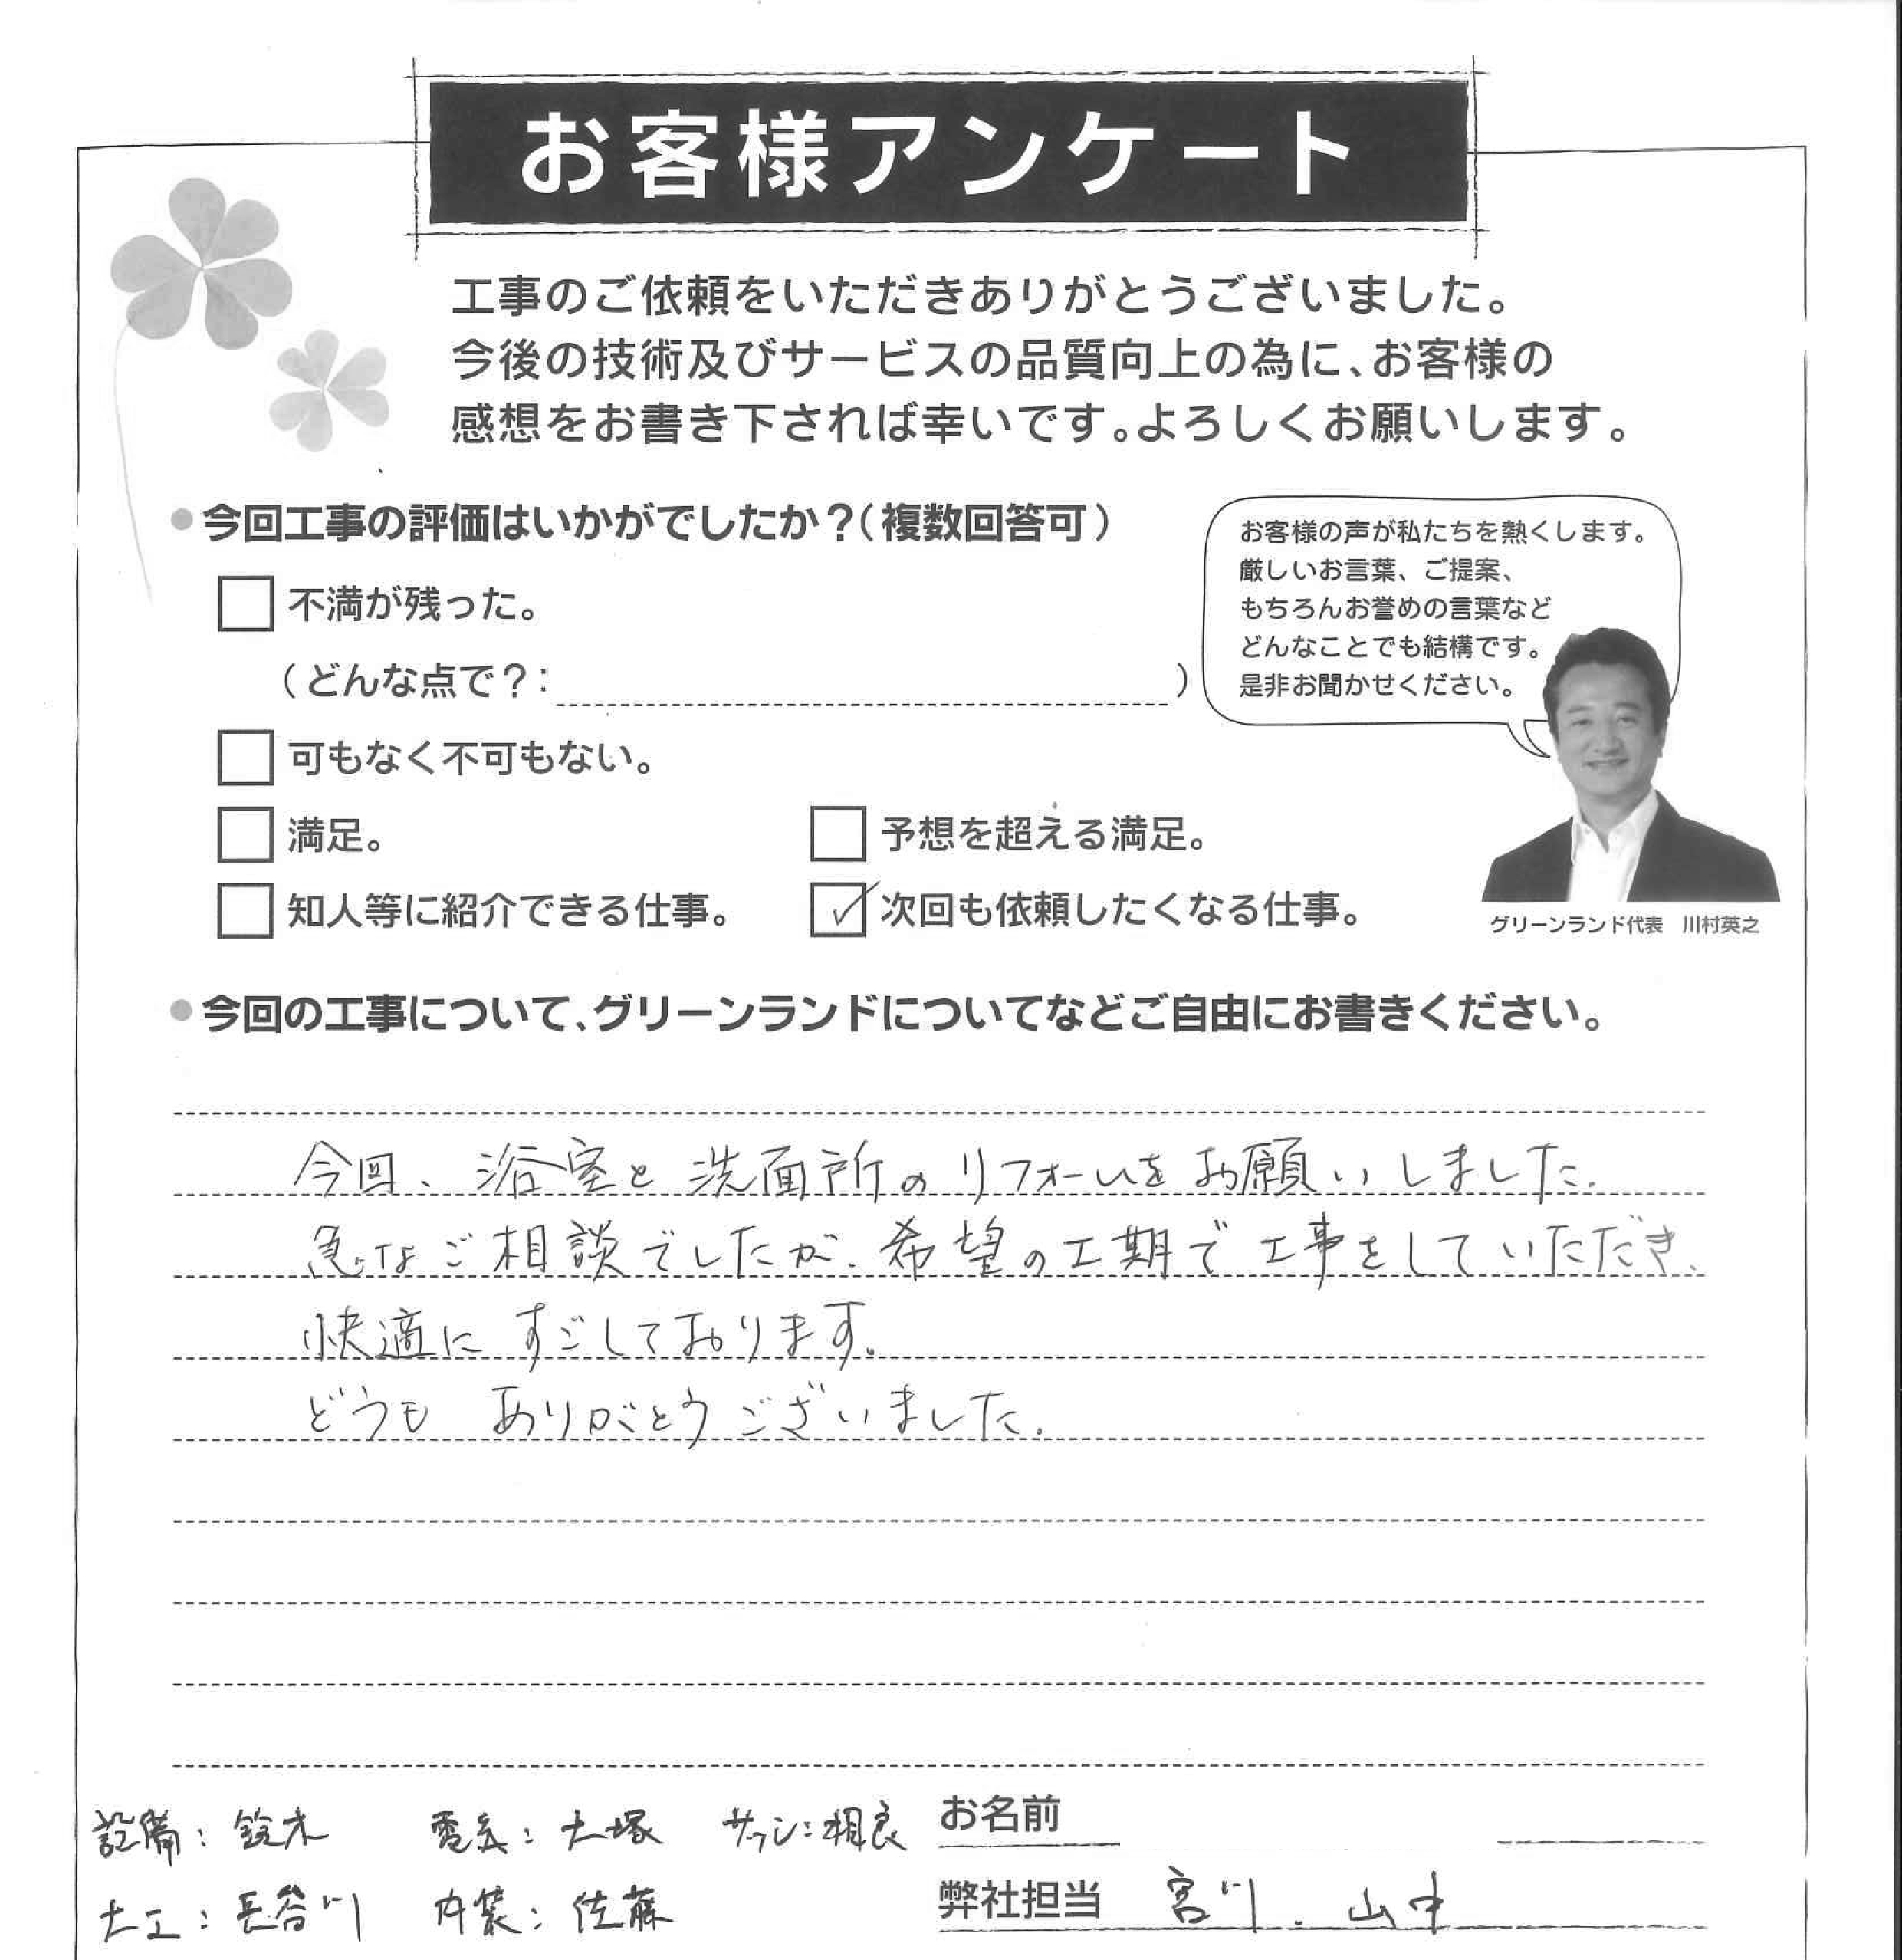 お客様アンケート
工事のご依頼をいただきありがとうございました。
今後の技術及びサービスの品質向上の為に、お客様の
感想をお書き下されば幸いです。よろしくお願いします。
●今回工事の評価はいかがでしたか？（複数回答可）
不満が残った。
（どんな点で？：　）
可もなく不可もない。
満足。
予想を超える満足。
知人等に紹介できる仕事。
次回も依頼したくなる仕事。
お客様の声が私たちを熱くします。
厳しいお言葉、ご提案、
もちろんお誉めの言葉など
どんなことでも結構です。
是非お聞かせください。
グリーンランド代表　川村英之
●今回の工事について、グリーンランドについてなどご自由にお書きください。
今回、浴室と洗面所のリフォームをお願いしました。
急なご相談でしたが、希望の工期で工事をしていただき、
快適にすごしております。
どうもありがとうございました。
設備：鈴木　電気：大塚　サッシ：相良
大工：長谷川　内装：佐藤
お名前
弊社担当　宮川、山中